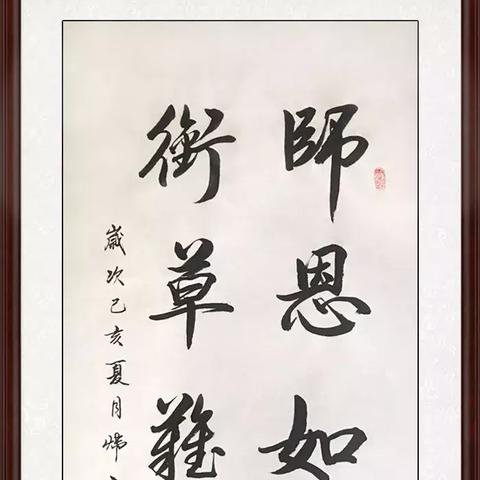 師恩如
銜草難
歲次己亥夏月